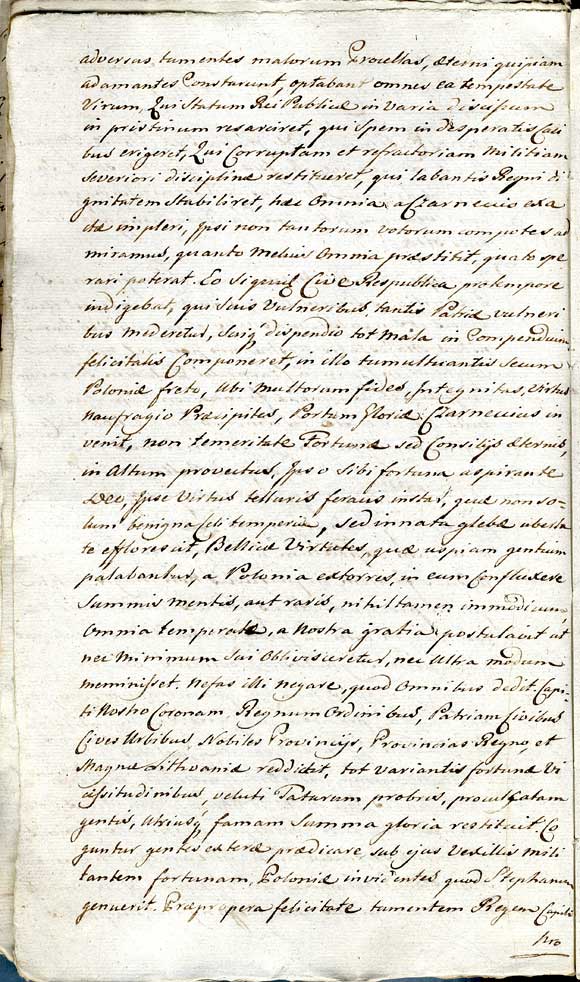 adversus tumentes malorum Procellas, æterni quipiam
adamantes Constarent, optabant omnes ea tempestate
Virum, Qui Statum Rei Publicæ in varia discissum
in pristinum resarciret, qui Spem in desperatis Casi
bus erigeret, Qui Corruptam et refractoriam Militiam
Severiori disciplinæ restitueret, qui labantis Regni di
gnitatem Stabiliret, hæc Omnia a Czarnecio exa
cte impleri, Ipsi non tantorum votorum compotes ad
miramur, quanto Melius Omnia præstitit, quæ spe
rari poterat. Eo Cive Respublica pro tempore
indigebat, qui Suis Vulneribus, tantis Patriæ vulneri
bus mederetur, Suoq dispendio tot Mala in Compendium
felicitatis Componeret, in illo tumultuantis Secum
Poloniæ freto, Ubi Multorum fides, Integritas, Virtus
naufragio Præcipites, Portum Gloriæ Czarnecius in
venit, non temeritate Fortunæ sed Consilijs æternis,
in Altum provectus, Ipso Sibi fortuna aspirante
Deo, Ipse Virtus telluris feracis instar, quæ non so-
lum benigna Cæli temperie, sed innata glebæ uberta
te efflorescit, Bellicæ Virtutes, quæ uspiam gentium
palabantur, a Polonia extorres, in eum Confluxere
Summis mentis, aut raris, nihil tamen immodicum,
Omnia temperate, a Nostra gratia postulavit ut
nec Minimum Sui Oblivisceretur, nec Ultra modum
meminisset. Nefas illi negare, quod Omnibus dedit. Capi
ti Nostro Coronam, Regnum Ordinibus, Patriam Civibus
Cives Urbibus, Nobiles Provincijs, Provincias Regno, et
Magnæ Lithvaniæ reddidit, tot variantis fortunæ Vi
cissitudinibus, veluti Tatarum probris, proculcatam
gentis, Utriusq famam Summa gloria restituit Co
guntur gentes exteræ prædicare, sub ejus Vexillis mili
tantem fortunam, Poloniæ invidentes, quod Stephanum
genuerit. Præpropera felicitate tumentem Regem Capitis
hro